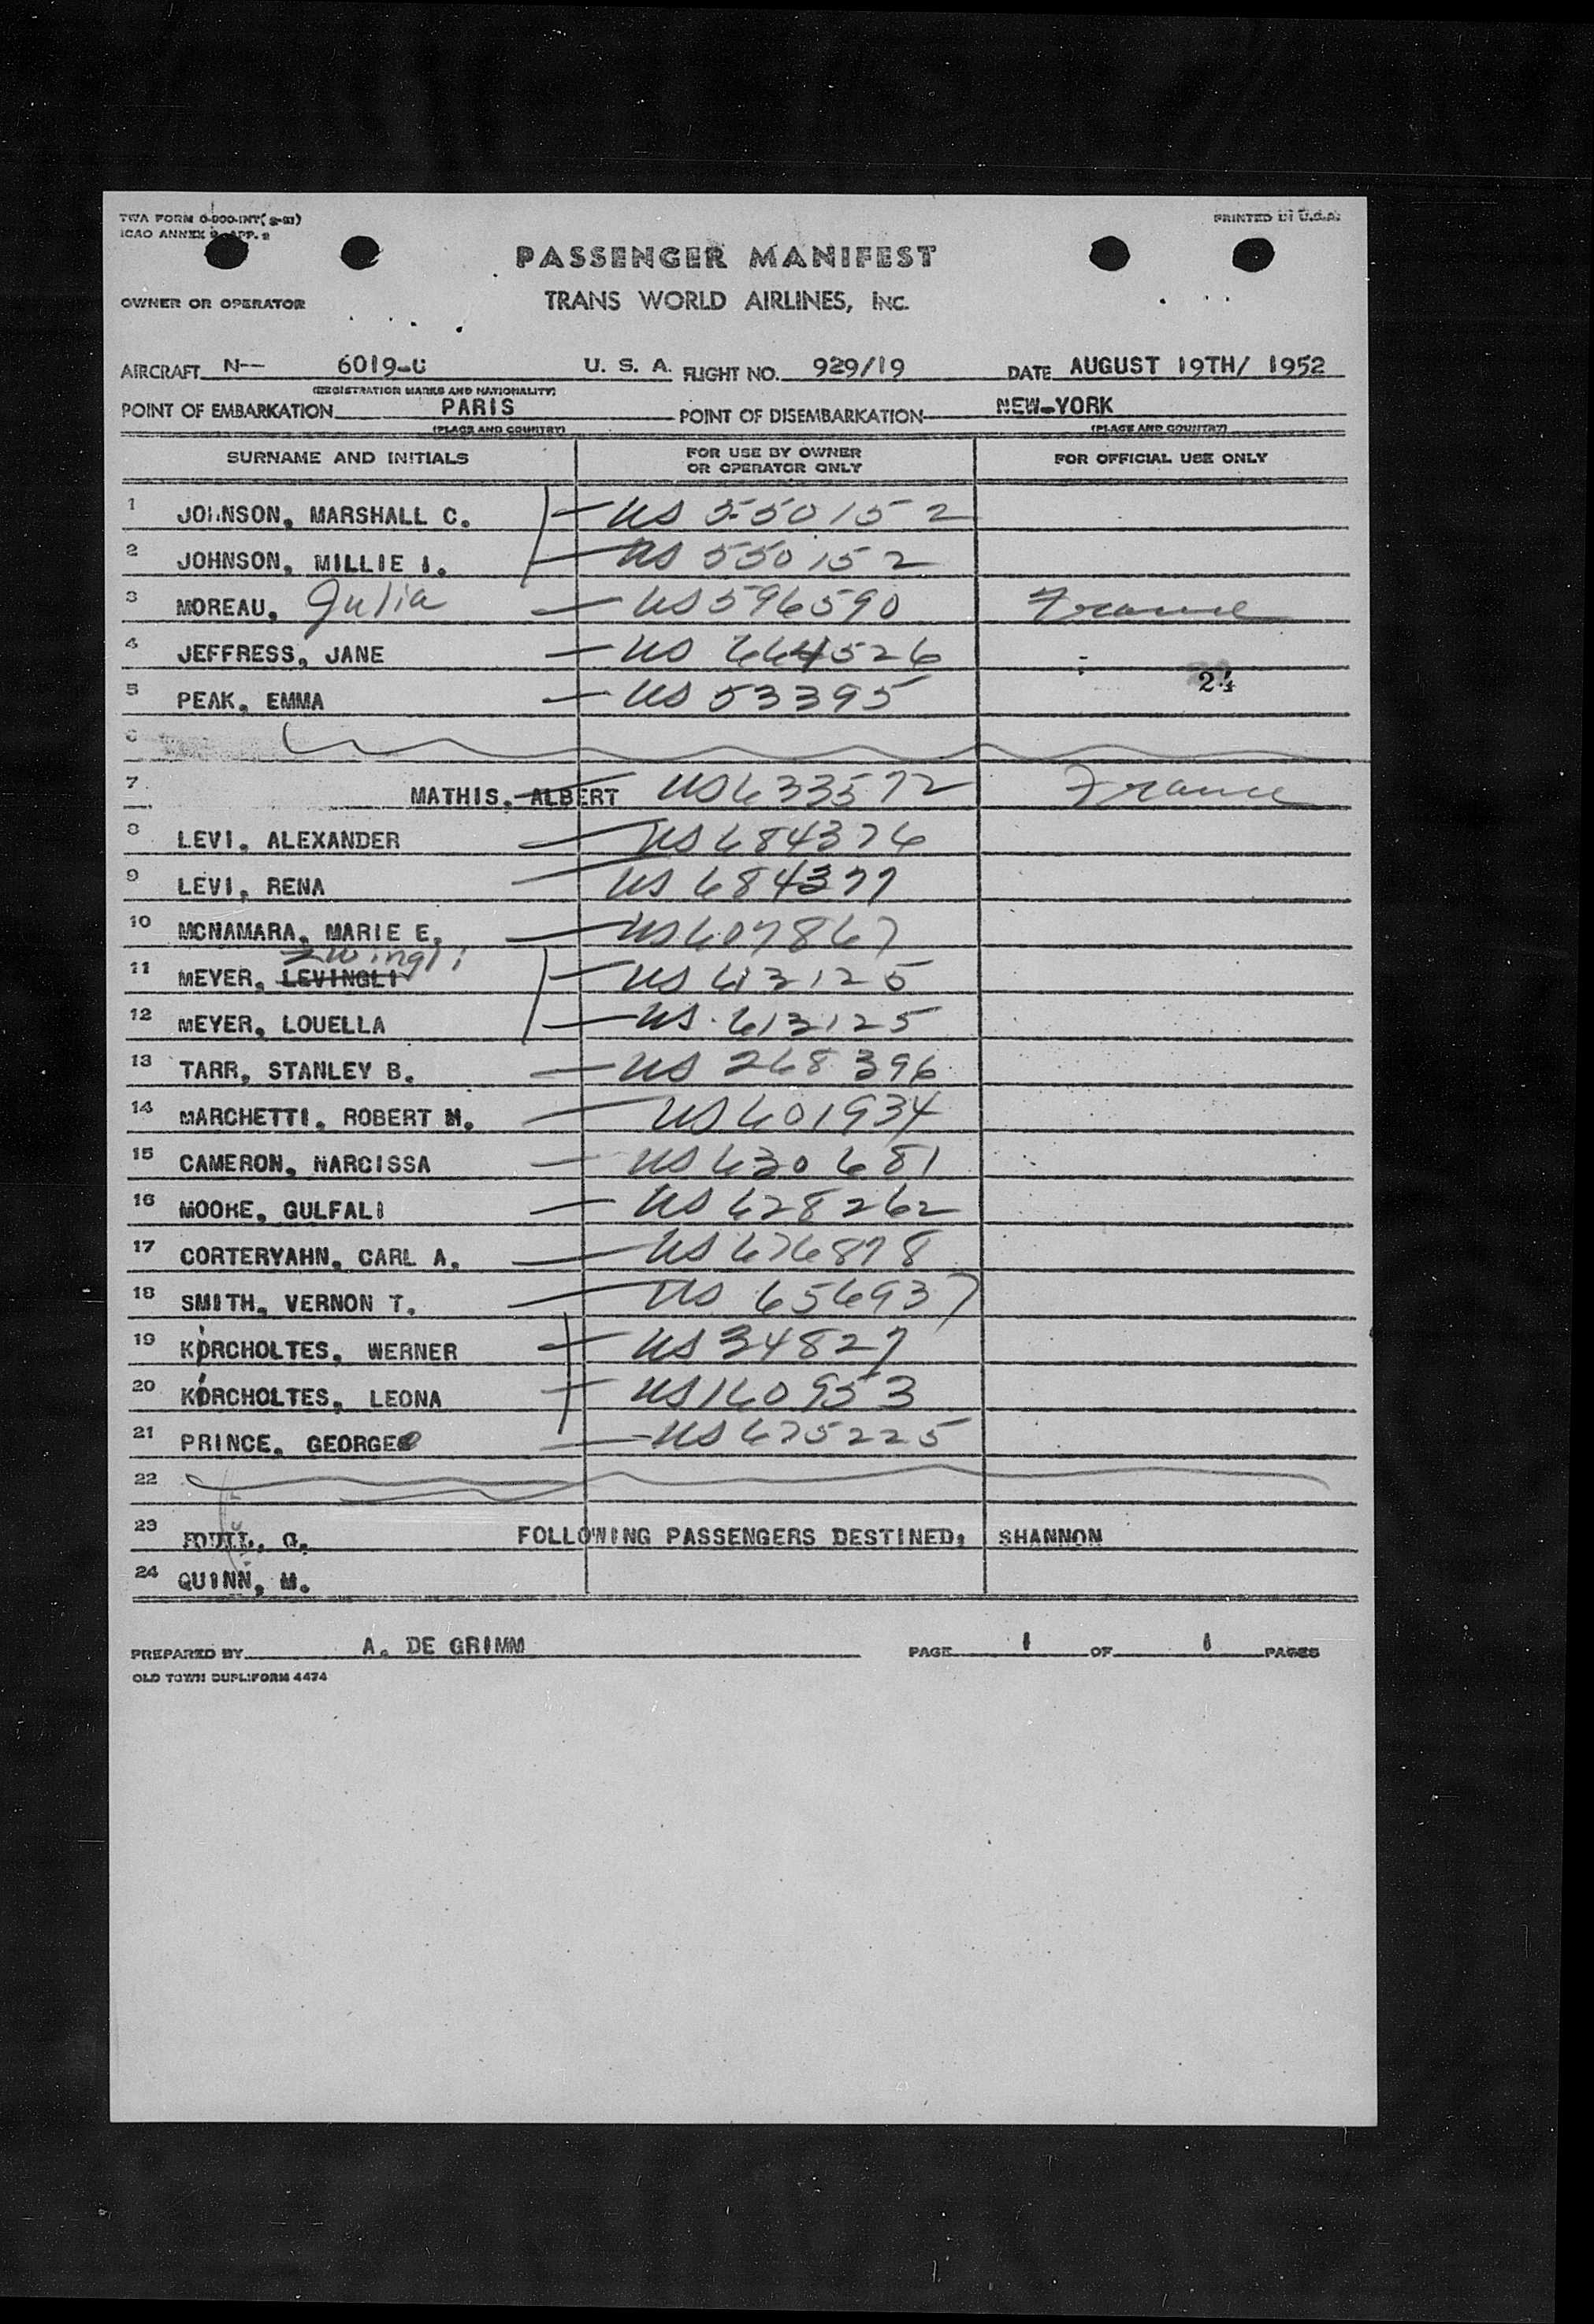 TWA FORM 0-000-INT
ICAO ANNEX 9 APP. 2
PRINTED IN U.S.A.
PASSENGER MANIFEST
OWNER OR OPERATOR TRANS WORLD AIRLINES, INC.
AIRCRAFT N-- 6019-C U. S. A. FLIGHT NO. 929/19 DATE AUGUST 19TH/ 1952
(REGISTRATION MARKS AND NATIONALITY)
POINT OF EMBARKATION PARIS POINT OF DISEMBARKATION NEW-YORK
(PLACE AND COUNTRY) (PLACE AND COUNTRY)
SURNAME AND INITIALS FOR USE BY OWNER OR OPERATOR ONLY FOR OFFICIAL USE ONLY
1 JOHNSON, MARSHALL C. US 550152
2 JOHNSON, MILLIE I. US 550152
3 MOREAU, Julia US 596590 France
4 JEFFRESS, JANE US 664526
24
5 PEAK, EMMA US 53395
6
7 MATHIS, ALBERT US 633572 France
8 LEVI, ALEXANDER US 684376
9 LEVI, RENA US 684377
10 MCNAMARA, MARIE E. US 607867
Zwingli
11 MEYER, LEVINGLI US 613125
12 MEYER, LOUELLA US 613125
13 TARR, STANLEY B. US 268396
14 MARCHETTI, ROBERT M. US 601934
15 CAMERON, NARCISSA US 630681
16 MOORE, GULFALI US 628262
17 CORTERYAHN, CARL A. US 676878
18 SMITH, VERNON T. US 656937
19 KIRCHOLTES, WERNER US 34827
20 KIRCHOLTES, LEONA US 160953
21 PRINCE, GEORGE US 675225
22
23 G. FOLLOWING PASSENGERS DESTINED: SHANNON
24 QUINN, M.
PREPARED BY A. DE GRIMM PAGE 1 OF 1 PAGES
OLD TOWN DUPLIFORM 4474